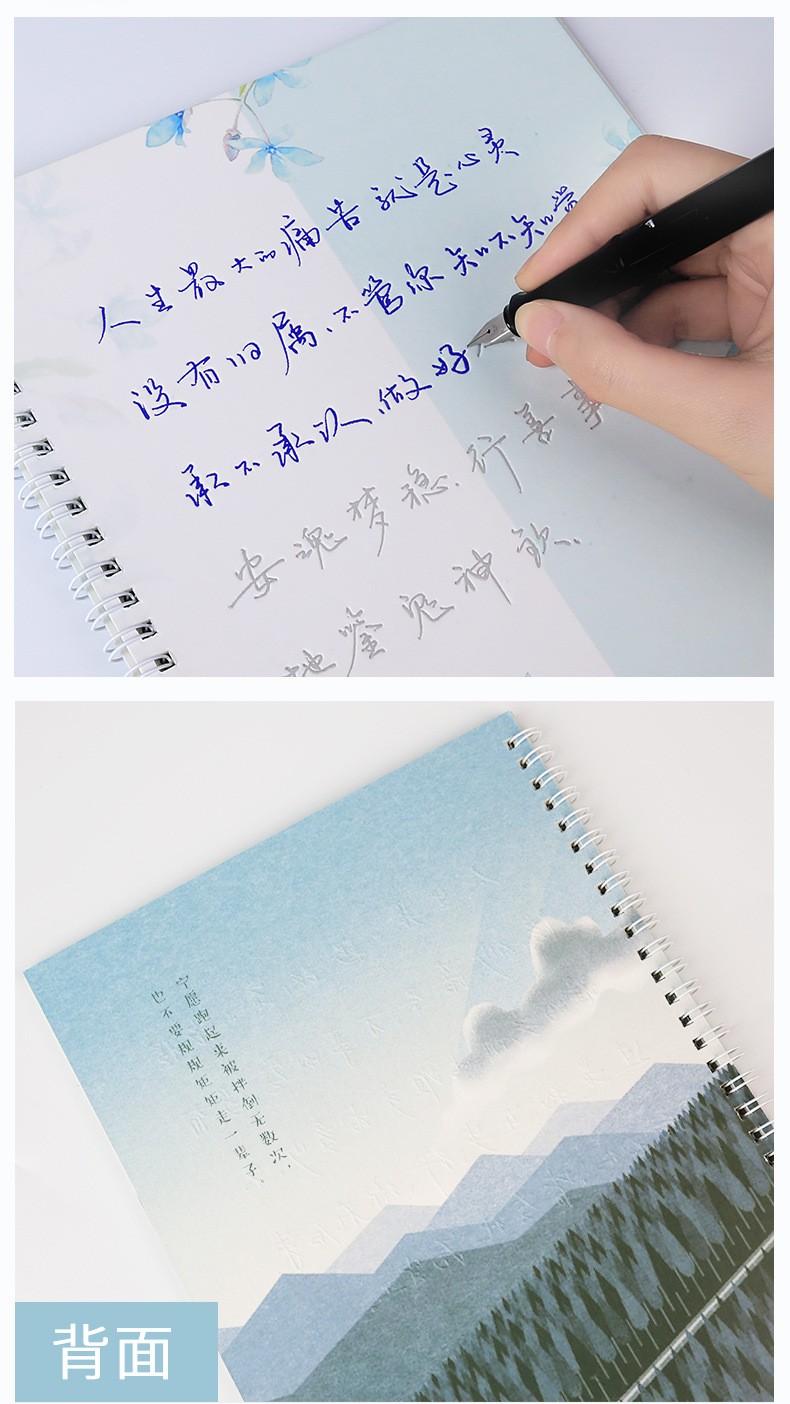 人生最大的痛苦就是心灵
没有归属、不管你知不知觉
承不承认、做好
安魂梦稳、行善
地鉴鬼神钦、
宁愿跑起来被拌倒无数次，
也不要规规矩矩走一辈子，
背面